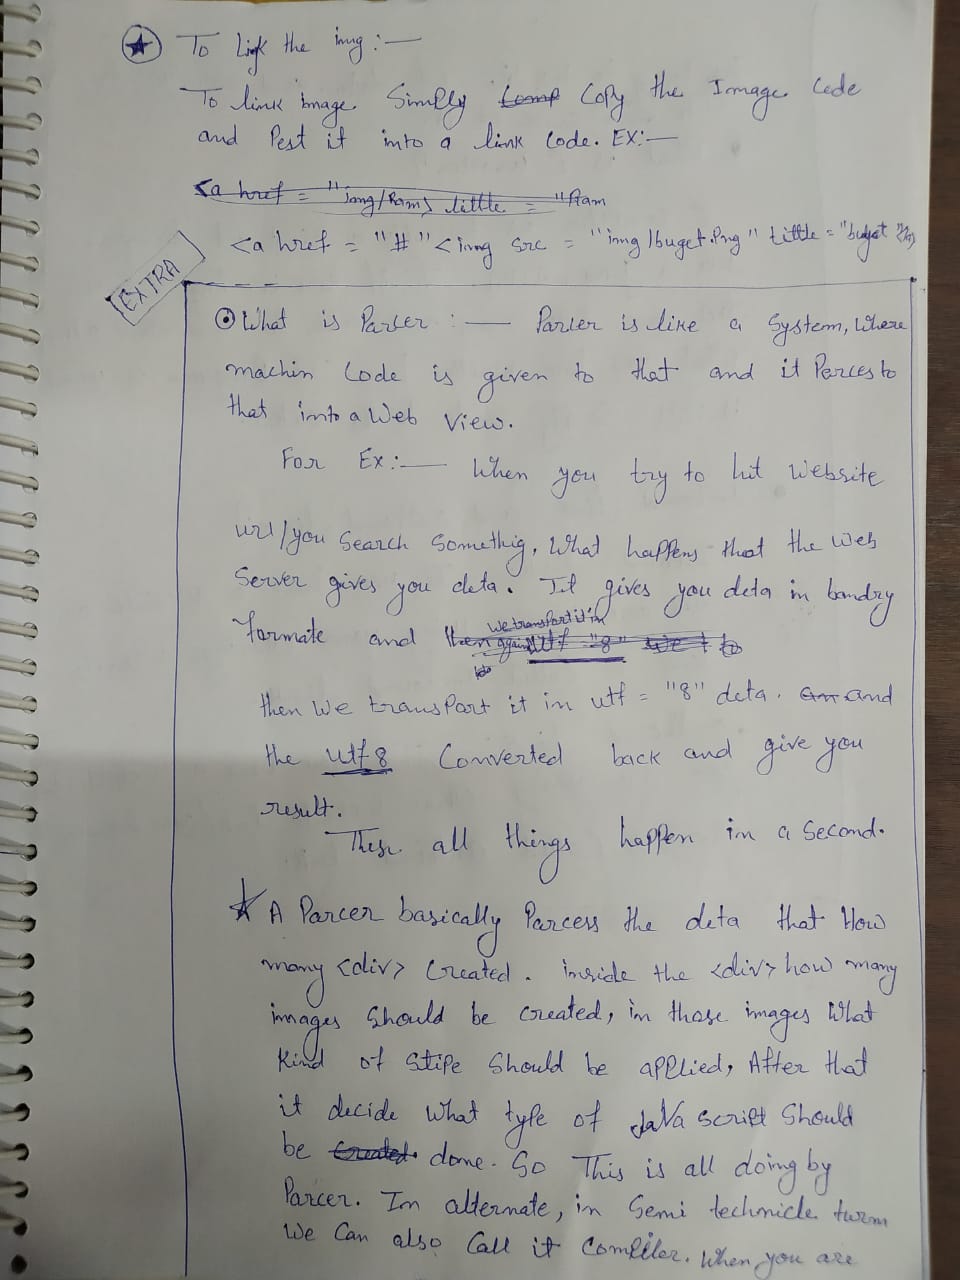 To Link the img :—
To link image Simply Comp Copy the Image Code
and Pest it into a link Code. EX:—
<a href = "img/Ram> tittle = "Ram
<a href = "#" <img src = "img/buget.Png" tittle = "budget
EXTRA
What is Parcer :— Parcer is like a System, Where
machin Code is given to that and it Parces to
that into a Web View.
For Ex:— When you try to hit Website
url/you Search Somethig, What happens that the Web
Server gives you deta. It gives you deta in bandry
formate and then again utf "8" we t to
we transport it in
then we transport it in utf = "8" deta. an and
the utf8 Converted back and give you
result.
These all things happen in a Second.
A Parcer basically Parcess the deta that How
many <div> Created. inside the <div> how many
images Should be created, in those images What
Kind of Stipe Should be applied, After that
it decide What type of JaVa Script Should
be Created. done. So This is all doing by
Parcer. In alternate, in Semi technicle turm
We Can also Call it Compiler. When you are